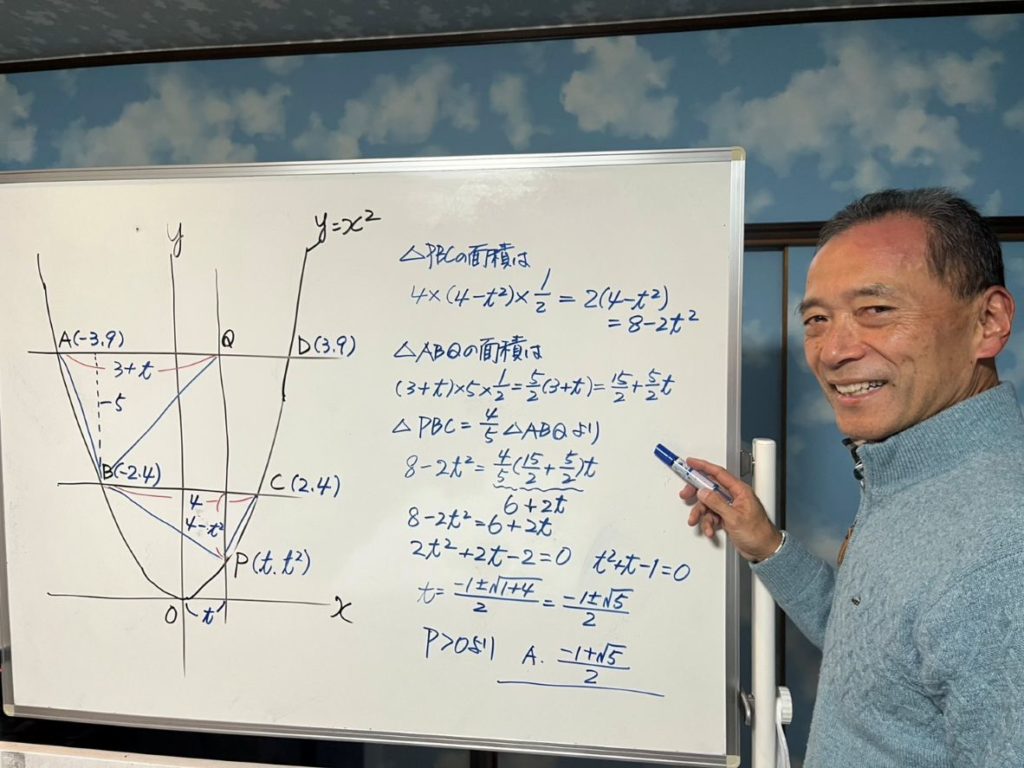 y
y=x²
A(-3.9)
Q
D(3.9)
3+t
5
B(-2.4)
C(2.4)
4
4-t²
P(t.t²)
O
t
x
△PBCの面積は
4×(4-t²)×1/2=2(4-t²)
=8-2t²
△ABQの面積は
(3+t)×5×1/2=5/2(3+t)=15/2+5/2t
△PBC=4/5△ABQより
8-2t²=4/5(15/2+5/2)t
6+2t
8-2t²=6+2t
2t²+2t-2=0 t²+t-1=0
t=-1±√1+4/2=-1±√5/2
P>0より A. -1+√5/2